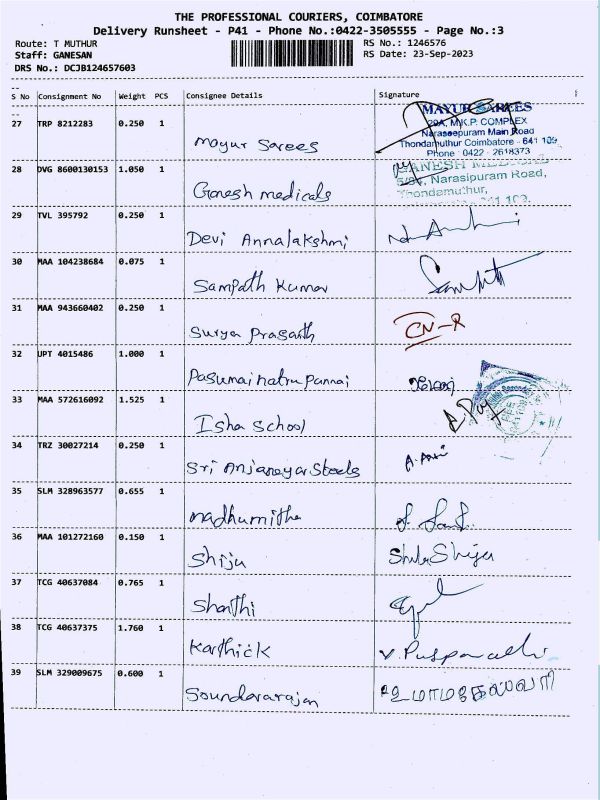 THE PROFESSIONAL COURIERS, COIMBATORE
Delivery Runsheet - P41 - Phone No.:0422-3505555 - Page No.:3
Route: T MUTHUR RS No.: 1246576
Staff: GANESAN RS Date: 23-Sep-2023
DRS No.: DCJB124657603
S No Consignment No Weight PCS Consignee Details Signature
27 TRP 8212283 0.250 1 Mayur Sarees
MAYUR SAREES
29A, M.K.P. COMPLEX
Naraseepuram Main Road
Thondamuthur Coimbatore - 641 109
Phone : 0422 - 2618373
28 DVG 8600130153 1.050 1 Ganesh medicals
GANESH MEDICAL
Narasipuram Road,
Thondamuthur,
29 TVL 395792 0.250 1 Devi Annalakshmi
30 MAA 104238684 0.075 1 Sampath Kumar
31 MAA 943660402 0.250 1 Surya Prasanth CN-R
32 UPT 4015486 1.000 1 Pasumai natru pannai
33 MAA 572616092 1.525 1 Isha School
34 TRZ 30027214 0.250 1 Sri Anjaneyar Steels
35 SLM 328963577 0.655 1 madhumitha
36 MAA 101272160 0.150 1 Shiju Shiju
37 TCG 40637084 0.765 1 Shanthi
38 TCG 40637375 1.760 1 Karthick V. Puspavathi
39 SLM 329009675 0.600 1 Soundararajan